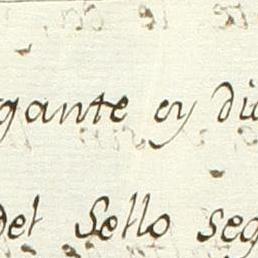 gante oy di
del Sello seg